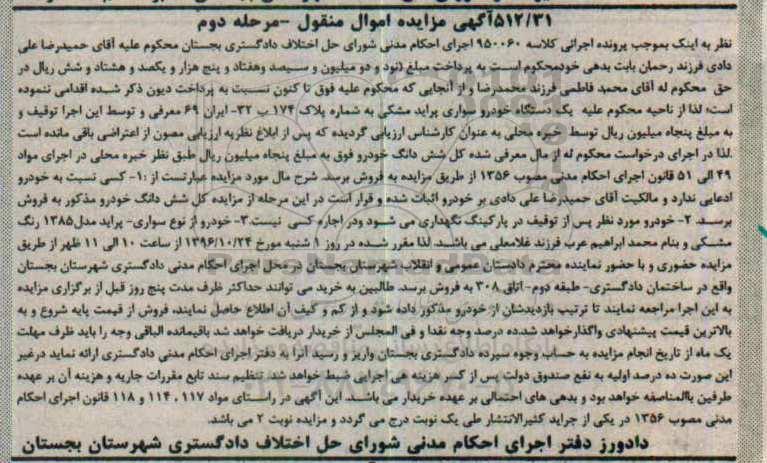 ۵۱۲/۳۱آگهی مزایده اموال منقول -مرحله دوم
نظر به اینک بموجب پرونده اجرائی کلاسه ۹۵۰۰۶۰ اجرای احکام مدنی شورای حل اختلاف دادگستری بجستان محکوم علیه آقای حمیدرضا علی
دادی فرزند رحمان بابت بدهی خودمحکوم است به پرداخت مبلغ (نود و دو میلیون و سیصد وهفتاد و پنج هزار و یکصد و هشتاد و شش ریال در
حق محکوم له آقای محمد فاطمی فرزند محمدرضا و از آنجایی که محکوم علیه فوق تا کنون نسبت به پرداخت دیون ذکر شده اقدامی ننموده
است؛ لذا از ناحیه محکوم علیه یک دستگاه خودرو سواری پراید مشکی به شماره پلاک ۱۷۴ ب ۳۲- ایران ۶۹ معرفی و توسط این اجرا توقیف و
به مبلغ پنجاه میلیون ریال توسط خبره محلی به عنوان کارشناس ارزیابی گردیده که پس از ابلاغ نظریه ارزیابی مصون از اعتراضی باقی مانده است
.لذا در اجرای درخواست محکوم له از مال معرفی شده کل شش دانگ خودرو فوق به مبلغ پنجاه میلیون ریال طبق نظر خبره محلی در اجرای مواد
۴۹ الی ۵۱ قانون اجرای احکام مدنی مصوب ۱۳۵۶ از طریق مزایده به فروش برسد. شرح مال مورد مزایده عبارتست از :۱- کسی نسبت به خودرو
ادعایی ندارد و مالکیت آقای حمیدرضا علی دادی بر خودرو اثبات شده و قرار است در این مرحله از مزایده کل شش دانگ خودرو مذکور به فروش
برسد. ۲- خودرو مورد نظر پس از توقیف در پارکینگ نگهداری می شود ودر اجاره کسی نیست.۳- خودرو از نوع سواری- پراید مدل۱۳۸۵ رنگ
مشکی و بنام محمد ابراهیم عرب فرزند غلامعلی می باشد. لذا مقرر شده در روز ۱ شنبه مورخ ۱۳۹۶/۱۰/۲۴ از ساعت ۱۰ الی ۱۱ ظهر از طریق
مزایده حضوری و با حضور نماینده محترم دادستان عمومی و انقلاب شهرستان بجستان در محل اجرای احکام مدنی دادگستری شهرستان بجستان
واقع در ساختمان دادگستری- طبقه دوم- اتاق ۳۰۸ به فروش برسد. طالبین به خرید می توانند حداکثر ظرف مدت پنج روز قبل از برگزاری مزایده
به این اجرا مراجعه نمایند تا ترتیب بازدیدشان از خودرو مذکور داده شود و از کم و کیف آن اطلاع حاصل نمایند، فروش از قیمت پایه شروع و به
بالاترین قیمت پیشنهادی واگذارخواهد شد.ده درصد وجه نقدا و فی المجلس از خریدار دریافت خواهد شد باقیمانده الباقی وجه را باید ظرف مهلت
یک ماه از تاریخ انجام مزایده به حساب وجوه سپرده دادگستری بجستان واریز و رسید آنرا به دفتر اجرای احکام مدنی دادگستری ارائه نماید درغیر
این صورت ده درصد اولیه به نفع صندوق دولت پس از کسر هزینه هی اجرایی ضبط خواهد شد، تنظیم سند تابع مقررات جاریه و هزینه آن بر عهده
طرفین باالمناصفه خواهد بود و بدهی های احتمالی بر عهده خریدار می باشد. این آگهی در راستای مواد ۱۱۷ ، ۱۱۴ و ۱۱۸ قانون اجرای احکام
مدنی مصوب ۱۳۵۶ در یکی از جراید کثیرالانتشار طی یک نوبت درج می گردد و مزایده نوبت ۲ می باشد.
دادورز دفتر اجرای احکام مدنی شورای حل اختلاف دادگستری شهرستان بجستان